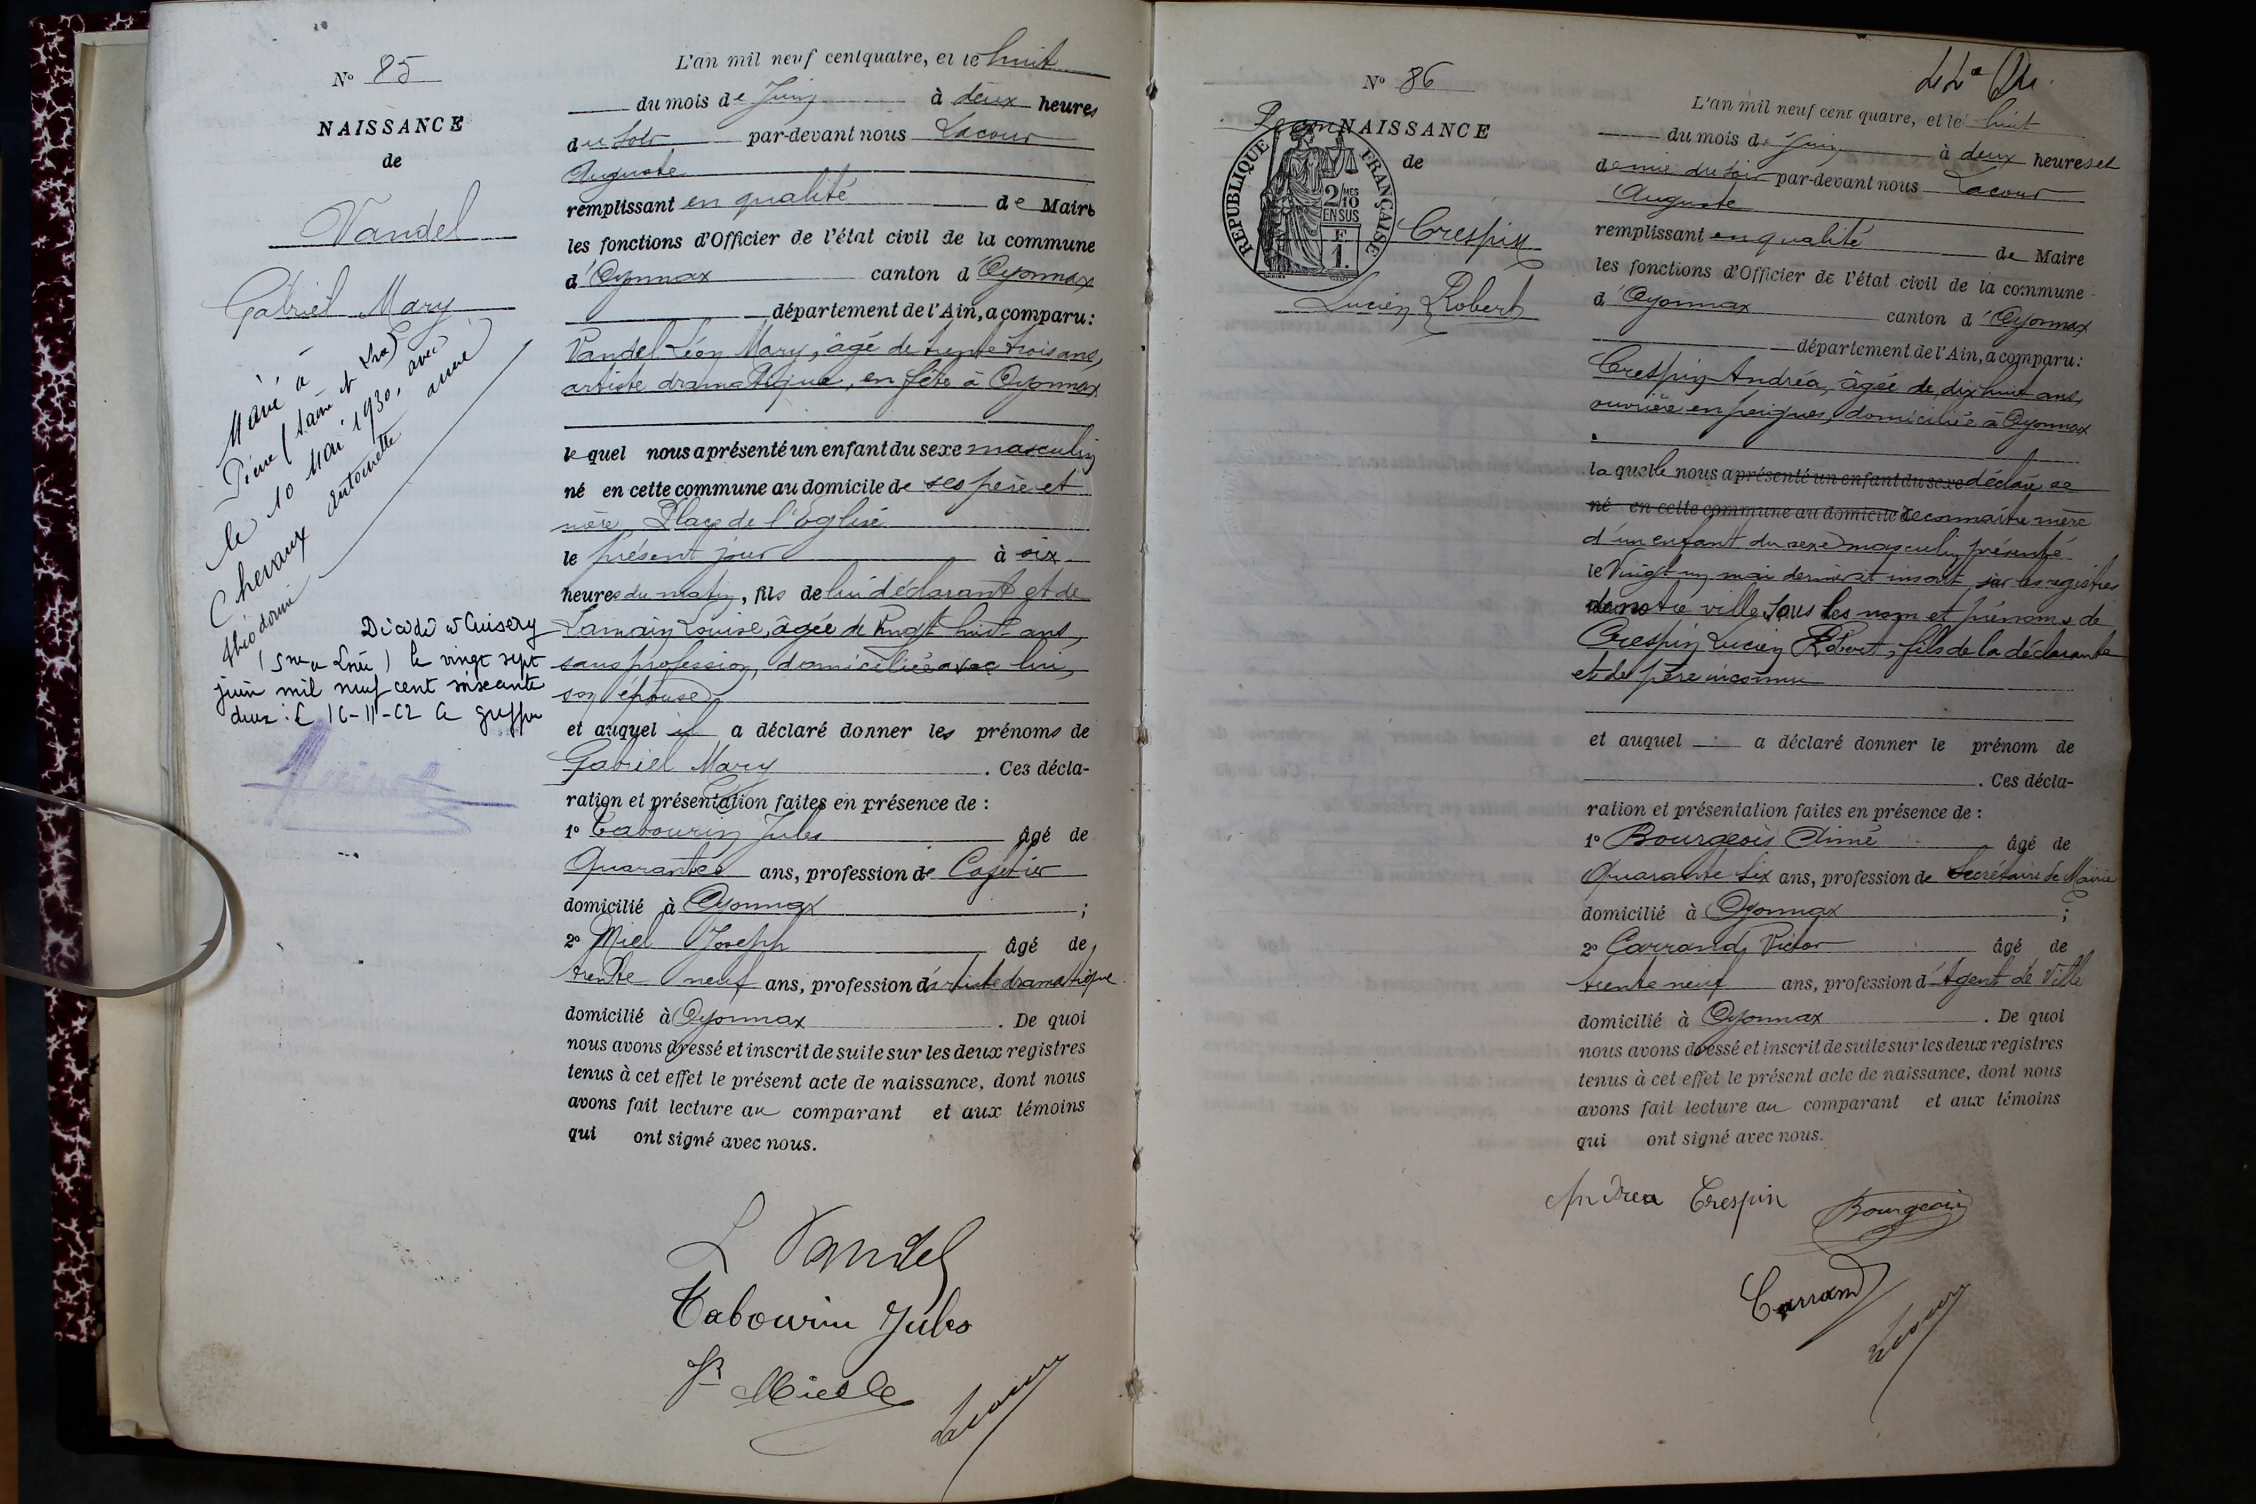 N° 85
NAISSANCE
de
Vandel
Gabriel Mary
Marié à
Pierre (Saône et Lre)
le 10 Mai 1930, avec
Chevaux Antoinette Anne
Théodorine
Décédé à Cuisery
(Sne & Loire) le vingt sept
juin mil neuf cent soixante
deux. Le 16-11-62 Le greffier
L'an mil neuf cent quatre, et le huit
du mois de Juin à deux heures
du soir par-devant nous Lacour
Auguste
remplissant en qualité de Maire
les fonctions d'Officier de l'état civil de la commune
d'Oyonnax canton d'Oyonnax
département de l'Ain, a comparu :
Vandel Léon Mary, âgé de trente trois ans,
artiste dramatique, en fête à Oyonnax
lequel nous a présenté un enfant du sexe masculin
né en cette commune au domicile de ses père et
mère, Place de l'Eglise
le présent jour à six
heures du matin, fils de lui déclarant et de
Lamain Louise, âgée de Vingt huit ans,
sans profession, domiciliée avec lui,
son épouse
et auquel il a déclaré donner les prénoms de
Gabriel Mary . Ces décla-
ration et présentation faites en présence de :
1° Tabourin Jules âgé de
Quarante ans, profession de Cafetier
domicilié à Oyonnax ;
2° Miel Joseph âgé de
trente neuf ans, profession d'artiste dramatique
domicilié à Oyonnax . De quoi
nous avons dressé et inscrit de suite sur les deux registres
tenus à cet effet le présent acte de naissance, dont nous
avons fait lecture au comparant et aux témoins
qui ont signé avec nous.
L Vandel
Tabourin Jules
Jh Mielle
Lacour
N° 86
NAISSANCE
de
RÉPUBLIQUE FRANÇAISE
2/10
EN SUS
F.
1.
Crespin
Lucien Robert
L'an mil neuf cent quatre, et le huit
du mois de Juin à deux heures et
demie du soir par-devant nous Lacour
Auguste
remplissant en qualité de Maire
les fonctions d'Officier de l'état civil de la commune
d'Oyonnax canton d'Oyonnax
département de l'Ain, a comparu :
Crespin Andréa, âgée de dix huit ans,
ouvrière en peignes, domiciliée à Oyonnax
laquelle nous a présenté un enfant du sexe déclaré se
né en cette commune au domicile reconnaître mère
d'un enfant du sexe masculin présenté
le Vingt un mai dernier et inscrit sur les registres
de notre ville sous les nom et prénoms de
Crespin Lucien Robert, fils de la déclarante
et de père inconnu
et auquel a déclaré donner le prénom de
. Ces décla-
ration et présentation faites en présence de :
1° Bourgeois Aimé âgé de
Quarante six ans, profession de Secrétaire de Mairie
domicilié à Oyonnax ;
2° Carrand Victor âgé de
trente neuf ans, profession d'Agent de Ville
domicilié à Oyonnax . De quoi
nous avons dressé et inscrit de suite sur les deux registres
tenus à cet effet le présent acte de naissance, dont nous
avons fait lecture au comparant et aux témoins
qui ont signé avec nous.
Andrea Crespin Bourgeois
Carrand
Lacour